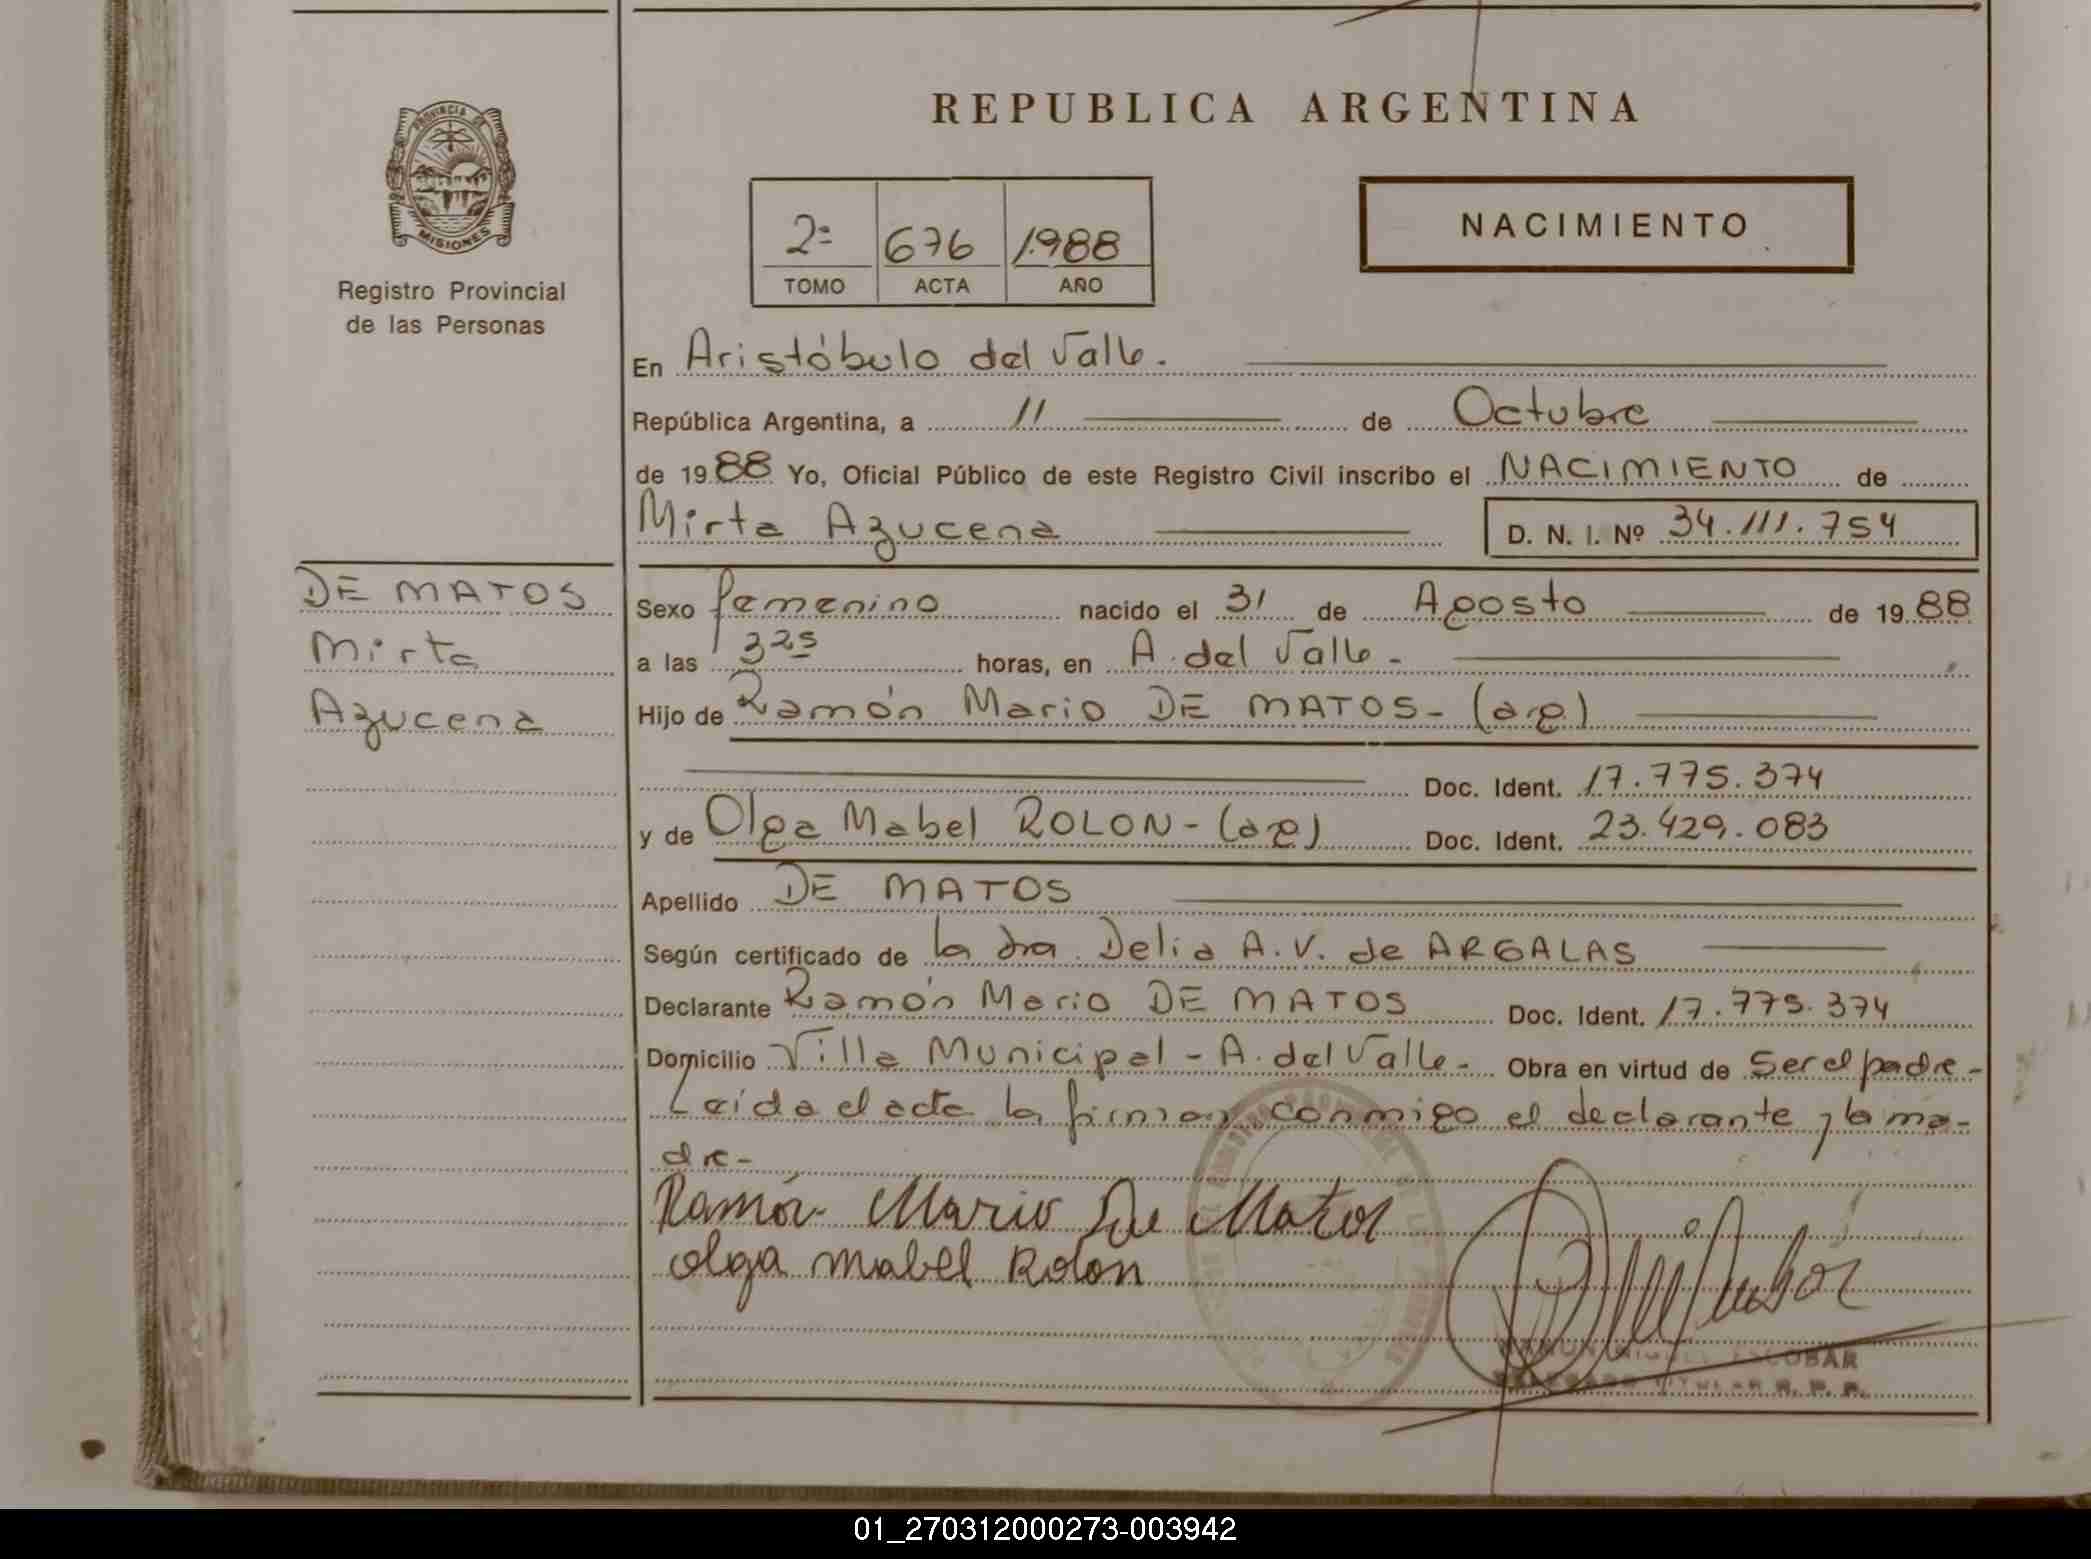 REPUBLICA ARGENTINA
PROVINCIA DE
MISIONES
Registro Provincial
de las Personas
2º 676 1.988
TOMO ACTA AÑO
NACIMIENTO
En Aristóbulo del Valle.
República Argentina, a 11 de Octubre
de 19 88 Yo, Oficial Público de este Registro Civil inscribo el NACIMIENTO de
Mirta Azucena D. N. I. Nº 34.111.754
DE MATOS
Mirta
Azucena
Sexo femenino nacido el 31 de Agosto de 19 88
a las 3 25 horas, en A. del Valle -
Hijo de Ramón Mario DE MATOS - (arg)
Doc. Ident. 17.775.374
y de Olga Mabel ROLON - (arg) Doc. Ident. 23.429.083
Apellido DE MATOS
Según certificado de la dra. Delia A. V. de ARGALAS
Declarante Ramón Mario DE MATOS Doc. Ident. 17.775.374
Domicilio Villa Municipal - A. del Valle - Obra en virtud de Ser el padre -
Leída el acta la firman conmigo el declarante y la ma-
dre -
Ramón Mario De Matos
Olga Mabel Rolon
RAMON MIGUEL ESCOBAR
DELEGADO TITULAR R. P. P.
01_270312000273-003942